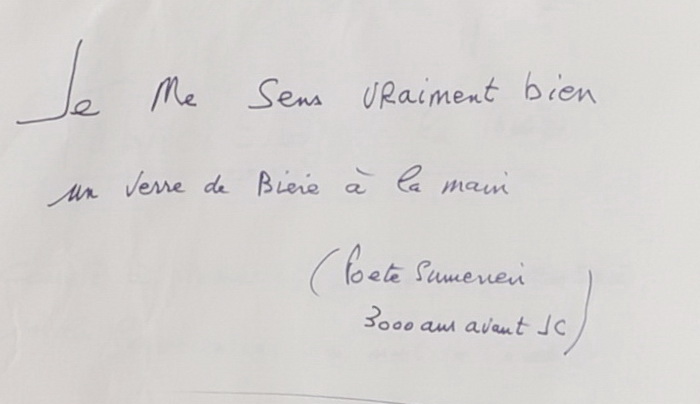 Je Me Sens vraiment bien
un verre de Bière à la main
(Poete Sumerien
3000 ans avant JC)